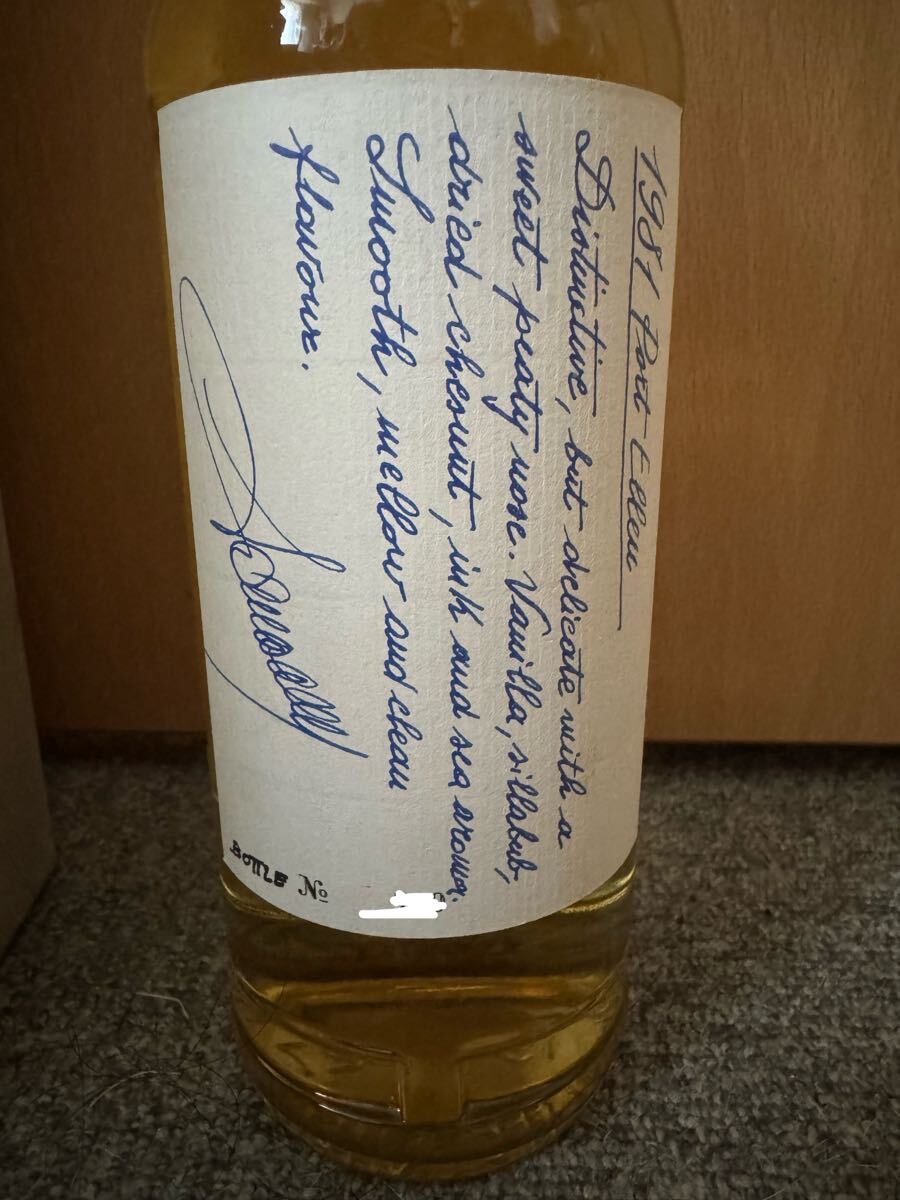 1981 Port Ellen
Distinctive, but delicate with a
sweet peaty nose. Vanilla, sillabub,
dried chesnut, ink and sea aroma.
Smooth, mellow and clean
flavour.
BOTTLE №